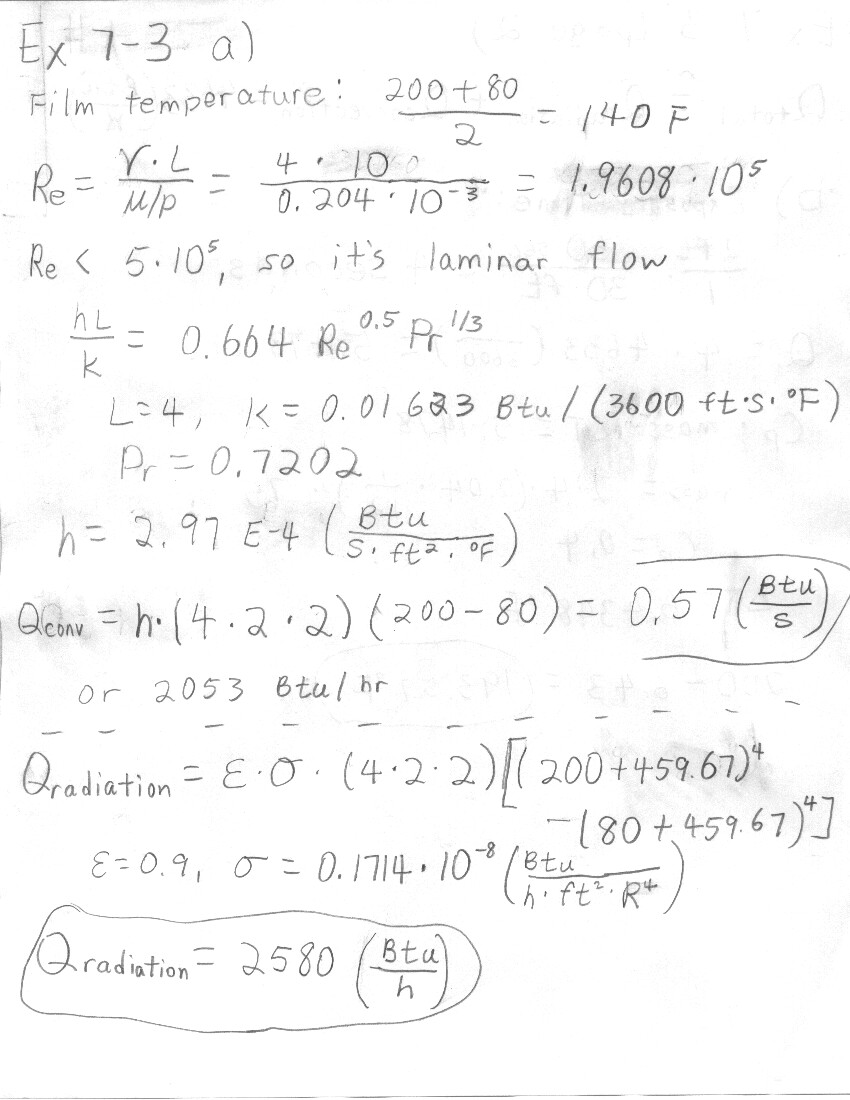 Ex 7-3 a)
Film temperature: (200 + 80)/2 = 140 F
Re = (V·L)/(μ/ρ) = (4 · 10)/(0.204 · 10⁻³) = 1.9608 · 10⁵
Re < 5·10⁵, so it's laminar flow
hL/k = 0.664 Re^0.5 Pr^1/3
L=4, k = 0.01623 Btu/(3600 ft·s·°F)
Pr = 0.7202
h = 2.97 E-4 (Btu/(s·ft²·°F))
Qconv = h·(4·2·2)(200-80) = 0.57 (Btu/s)
or 2053 Btu/hr
Qradiation = ε·σ·(4·2·2)[(200+459.67)⁴
-(80+459.67)⁴]
ε=0.9, σ = 0.1714·10⁻⁸ (Btu/(h·ft²·R⁴))
Qradiation = 2580 (Btu/h)